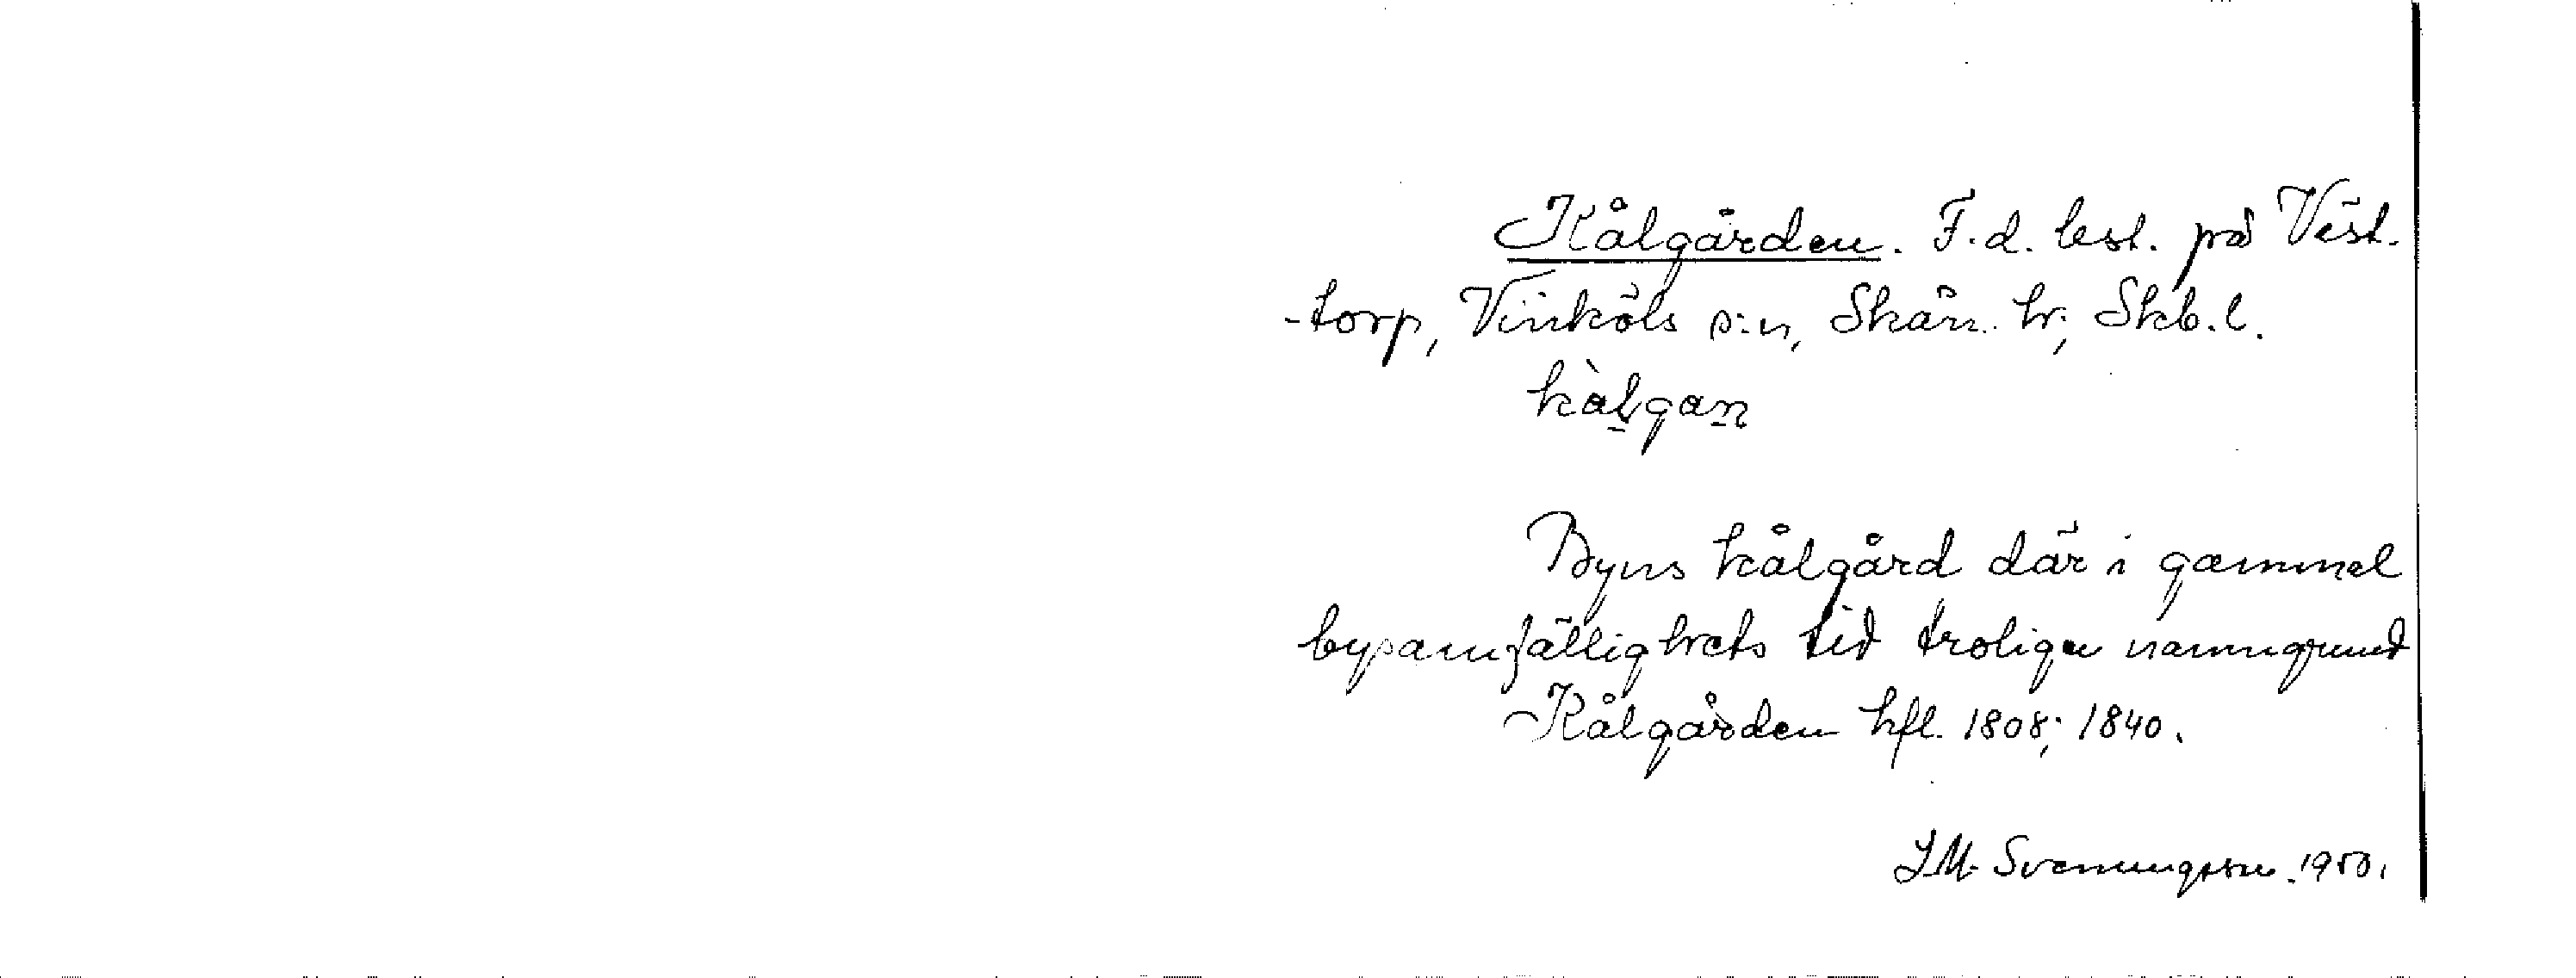 Kålgården. F.d. lest. på Väst-
-torp, Vinköls s:n, Skån. hr, Skb. l.
kàlgan
Byns kålgård där i gammal
bysamfällighets tid troligen namngrund
Kålgården hfl. 1808; 1840.
J.M. Svenungsson. 1950.